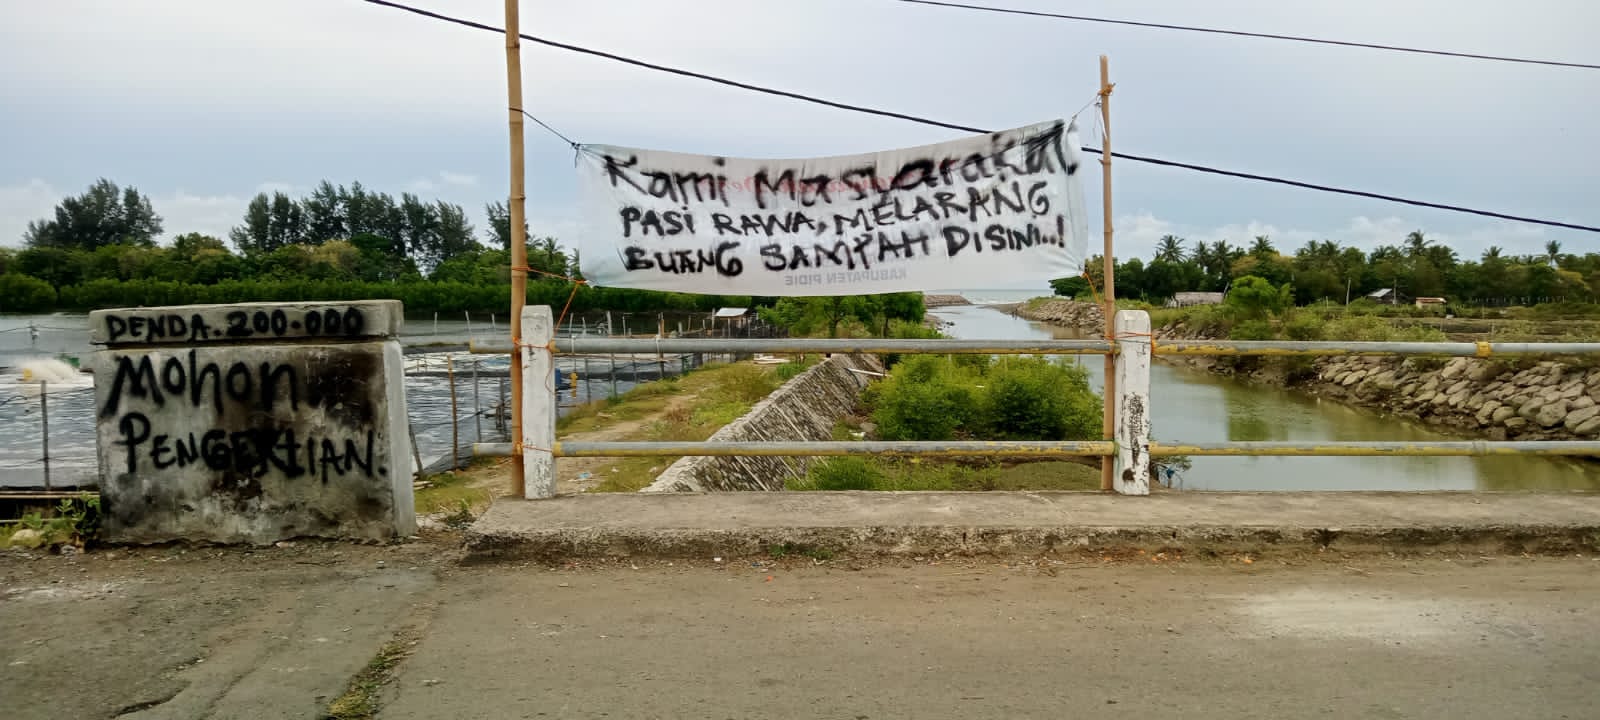 Kami Masyarakat
PASI RAWA, MELARANG
BUANG SAMPAH DISINI..!
KABUPATEN PIDIE
DENDA. 200.000
Mohon
PENGERTIAN.